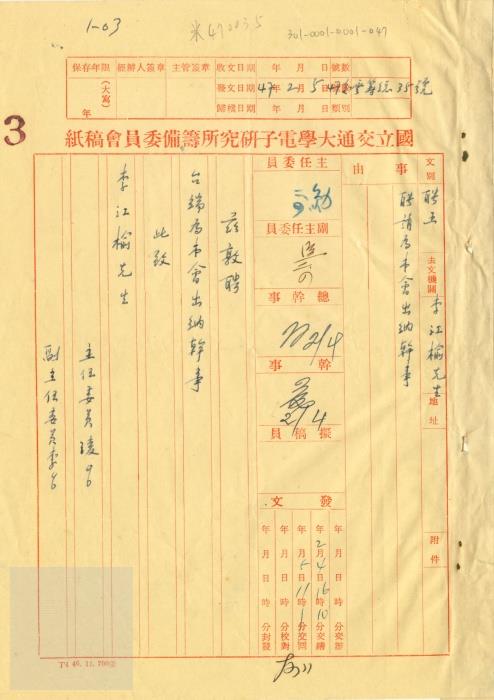 1-03
米470035
301-0001-0001-047
保存年限
（大寫）
年
經辦人簽章
主管簽章
收文日期 年 月 日
發文日期 47年2月5日
歸檔日期 年 月 日
號數
類別
3
國立交通大學電子研究所籌備委員會稿紙
文別 聘玉
去文機關 李江榆先生
地址
附件
事由
聘請為本會出納幹事
主任委員
副主任委員
總幹事
2/4
幹事
2/4
擬稿員
發文
年 月 日 時 分交辦
年2月4日16時10分交繕
年 月5日11時1分交回
年 月 日 時 分校對
年 月 日 時 分封發
茲敦聘
台端為本會出納幹事
此致
李江榆先生
主任委員凌
副主任委員李
T4 46. 11. 700